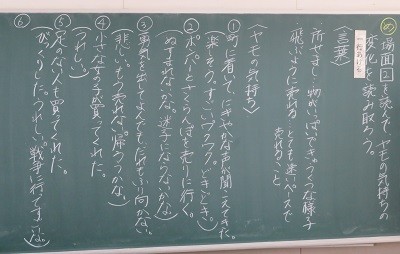 め 場面②を読んで、ヤモの気持ちの
変化を読み取ろう。
〈言葉〉
所せまし…物がいっぱいできゅうくつな様子
飛ぶように売れる…とても速いペースで
売れること
〈ヤモの気持ち〉
①町に着いて、にぎやかな声が聞こえてきた。
楽そう。すごい。ワクワク。どきどき。)
②パパーとさくらんぼを売りに行く。
(ぬすまれないかな。迷子にならないかな。)
③勇気を出してよんでも、だれもふり向かない。
(悲しい。もう売れない。帰ろうかな。)
④小さな女の子が買ってくれた。
(うれしい。)
⑤足のない人も買ってくれた。
(びっくりした。うれしい。戦争に行ってすごいな。)
⑥